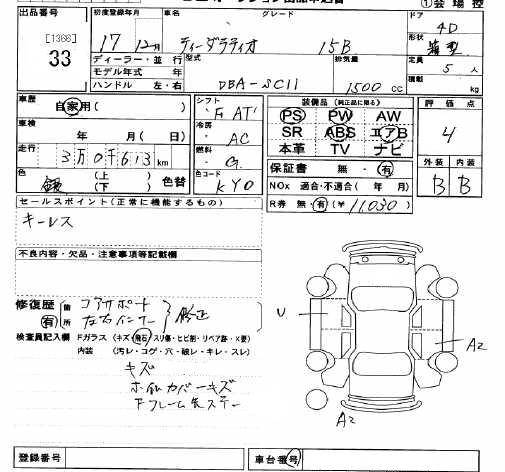 ①会場控
出品番号 初度登録年月 車名 グレード ドア 4D
[1366] 33 17年 12月 ティーダラティオ 15B 形状 箱型
ディーラー・並行 型式 排気量 定員 5人
モデル年式 年 DBA-SC11 1500cc 積載
ハンドル 左・右 kg
車歴 自家用( ) シフト F AT 装備品 (純正品に限る) 評価点
PS PW AW
車検 年 月( 日) 冷房 AC SR ABS エアB 4
本革 TV ナビ
走行 3万0千613km 燃料 G 外装 内装
保証書 無・有 B B
色 銀 (上) (下) 色替 色コード KY0 NOx 適合・不適合( 年 月)
R券 無・有(¥ 11,030 )
セールスポイント(正常に機能するもの)
キーレス
不良内容・欠品・注意事項等記載欄
修復歴 箇所 コアサポート
有 左右インナー 修正
検査員記入欄 Fガラス (キズ・飛石・スリ傷・ヒビ割・リペア跡・X要)
内装 (汚レ・コゲ・穴・破レ・キレ・スレ)
キズ
ホイルカバーキズ
U
A2
A2
登録番号 車台番号